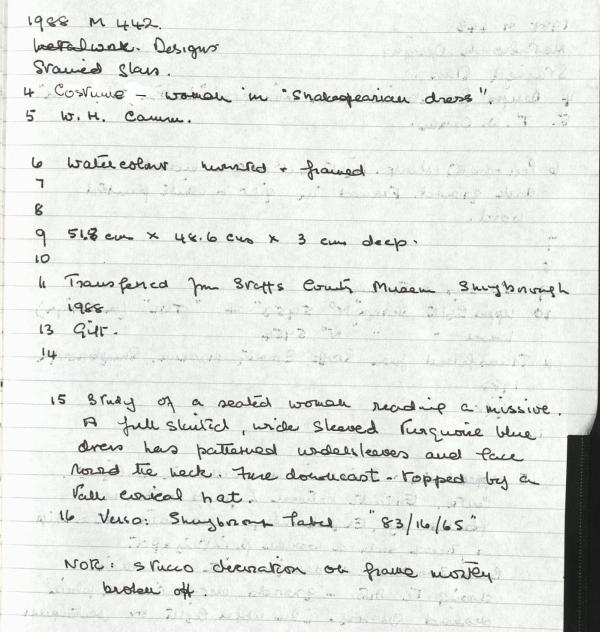 1988 M 442.
Metalwork. Designs
Stained Glass.
4 Costume – woman in "Shakespearian dress"
5 W. H. Camm.
6 Watercolour mounted + framed.
7
8
9 51.8 cm x 48.6 cms x 3 cms deep.
10
11 Transferred from Staffs County Museum, Shugborough
1988.
13 Gift.
14
15 Study of a seated woman reading a missive.
A full skirted, wide sleeved turquoise blue
dress has patterned undersleeves and lace
round the neck. Face downcast - topped by a
tall conical hat.
16 Verso: Shugborough label "83/16/65"
NOTE: stucco decoration on frame mostly
broken off